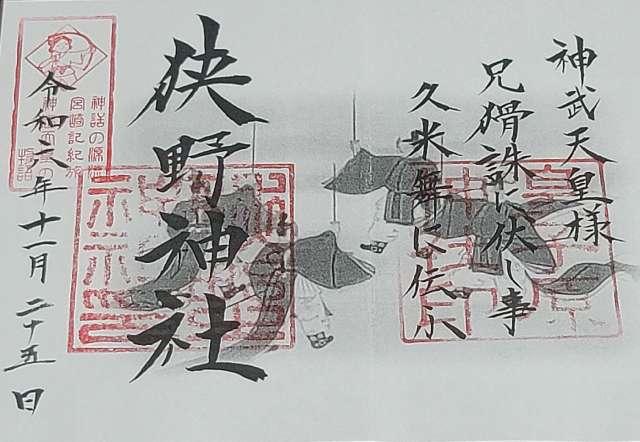 神武天皇様
兄猾誅に伏し事
久米舞に伝ふ
狭野神社
令和元年十一月二十五日
神話の源流
宮崎記紀の旅